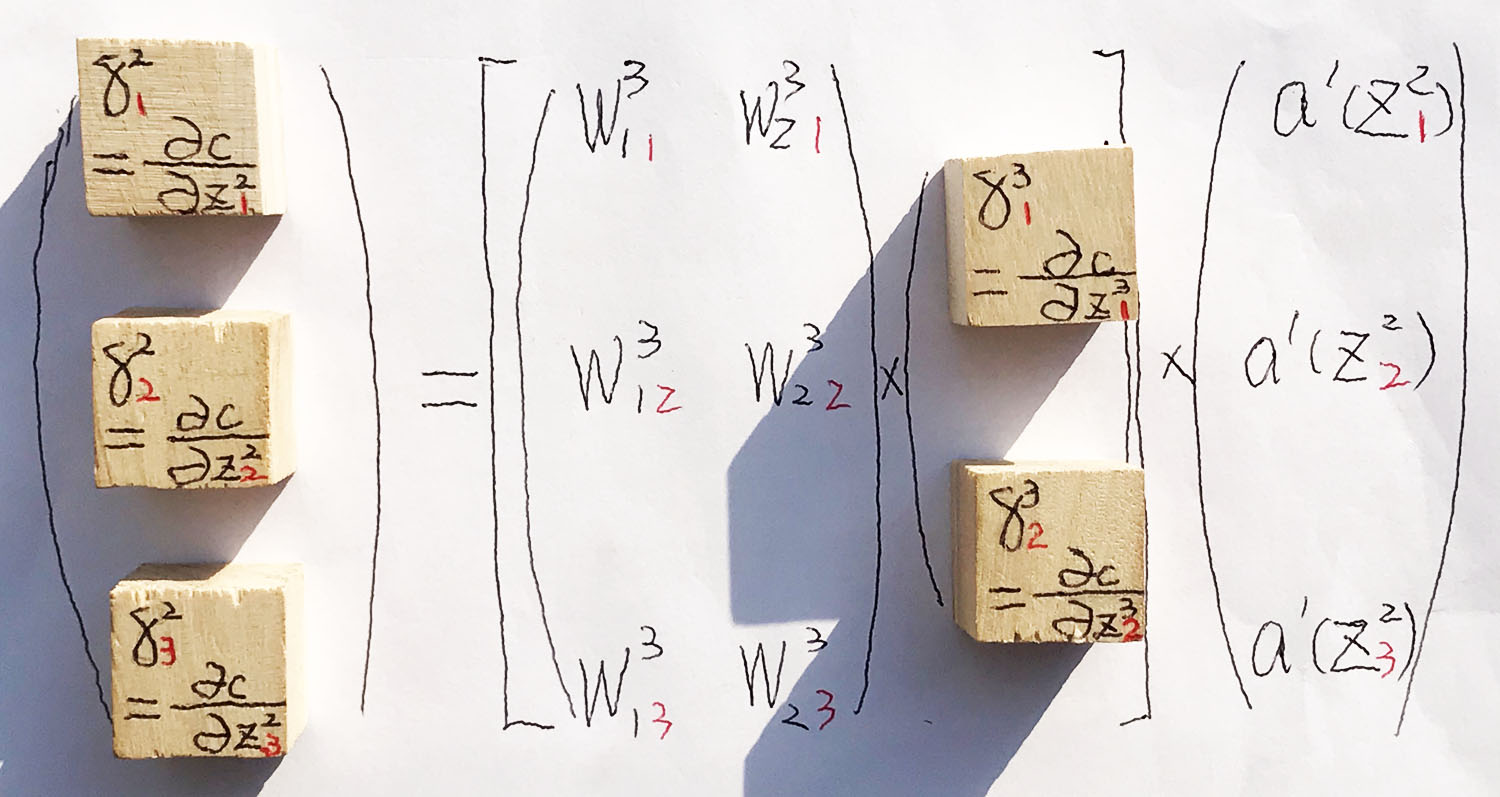 δ²₁ = ∂c/∂z²₁
δ²₂ = ∂c/∂z²₂
δ²₃ = ∂c/∂z²₃
=
w³₁₁ w³₂₁
w³₁₂ w³₂₂
w³₁₃ w³₂₃
×
δ³₁ = ∂c/∂z³₁
δ³₂ = ∂c/∂z³₂
×
a′(z²₁)
a′(z²₂)
a′(z²₃)